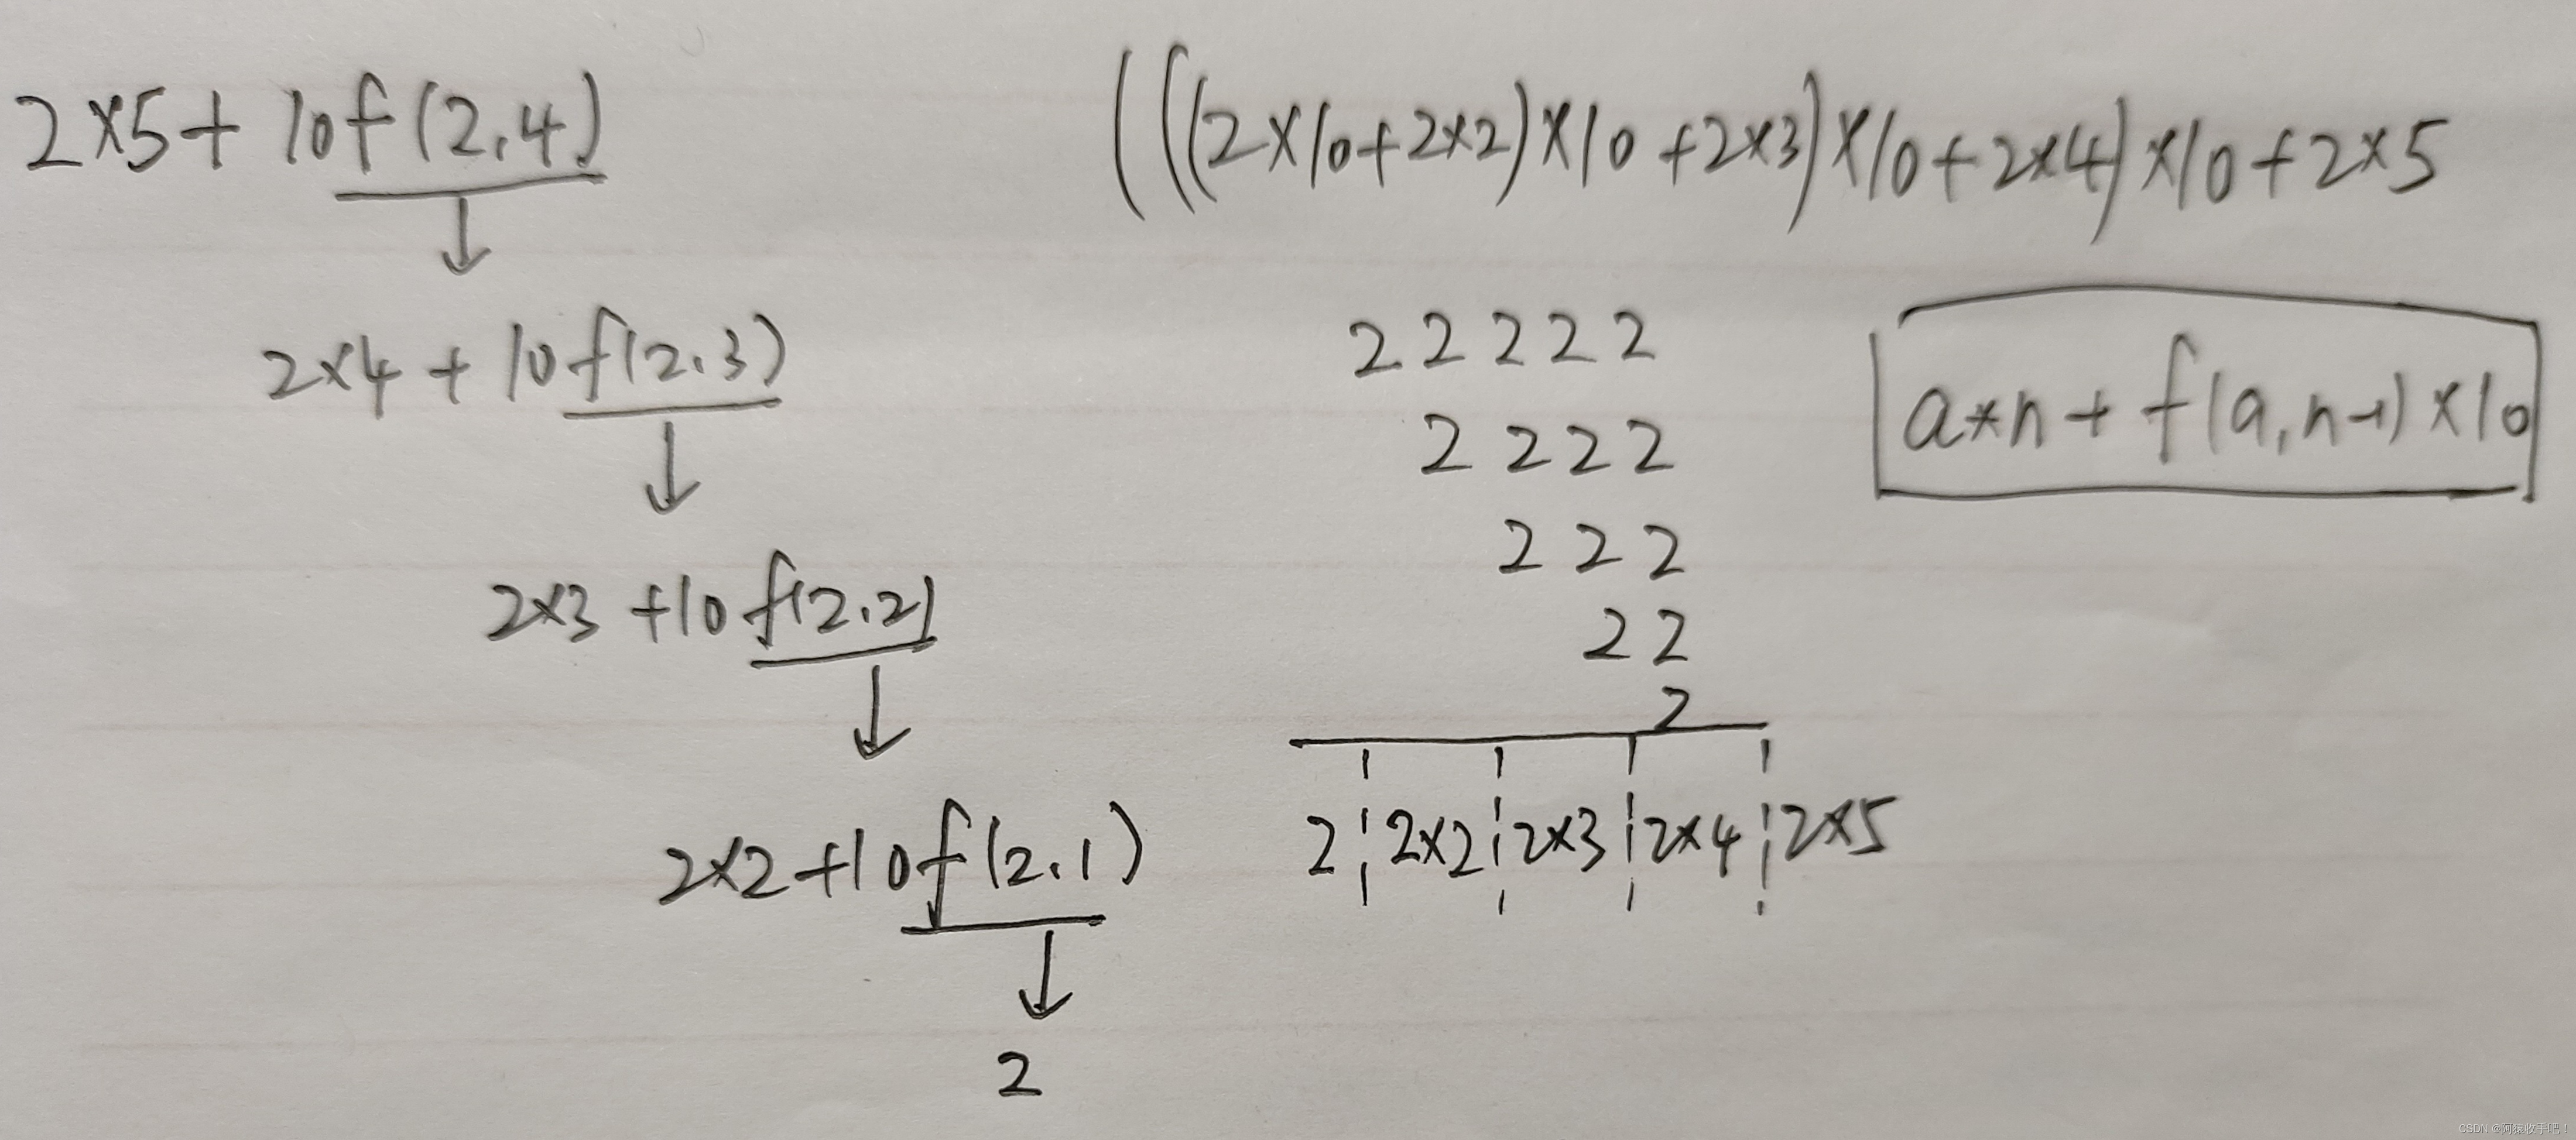 2×5+10f(2,4)
2×4+10f(2,3)
2×3+10f(2,2)
2×2+10f(2,1)
2
(((2×10+2×2)×10+2×3)×10+2×4)×10+2×5
22222
2222
222
22
2
2¦2×2¦2×3¦2×4¦2×5
a*n+f(a,n-1)×10
CSDN @阿猿收手吧！